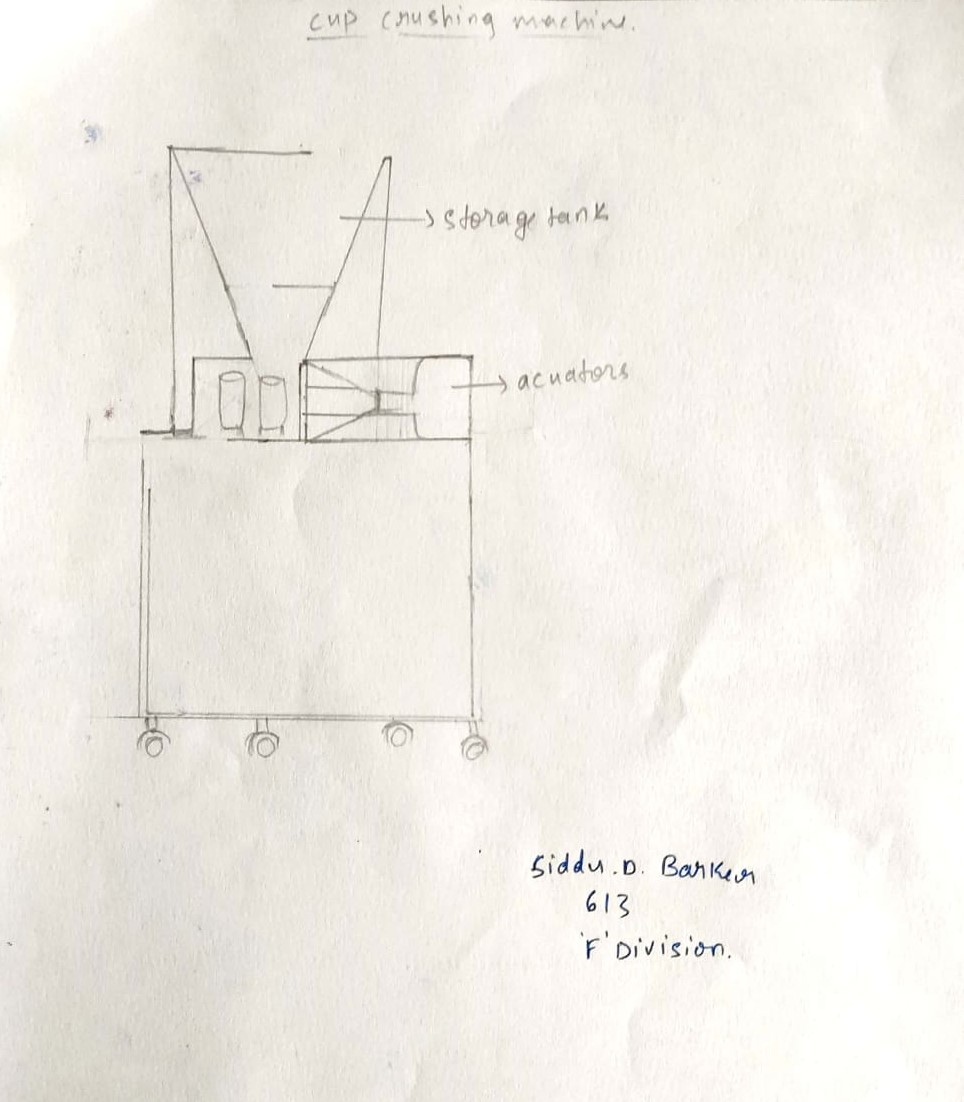 cup crushing machine.
storage tank
acuators
Siddu.D. Barker
613
'F' Division.